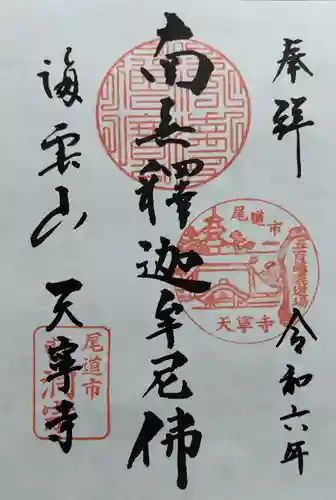 奉拝
令和六年
尾道市
天寧寺
南無釋迦牟尼佛
海雲山
天寧寺
尾道市